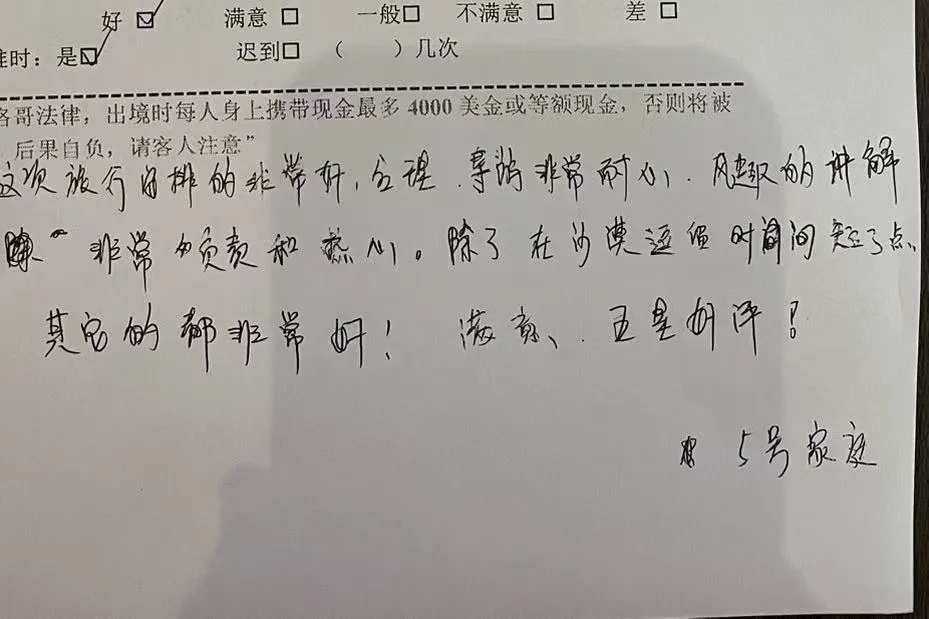 好 ☑ 满意 □ 一般□ 不满意 □ 差 □
准时：是☑ 迟到□ （ ）几次
洛哥法律，出境时每人身上携带现金最多 4000 美金或等额现金，否则将被
后果自负，请客人注意”
这次旅行安排的非常好，合理、导游非常耐心、风趣的讲解
非常负责和热心。除了在沙漠逗留时间间短了点、
其它的都非常好！ 满意、五星好评！
5号家庭